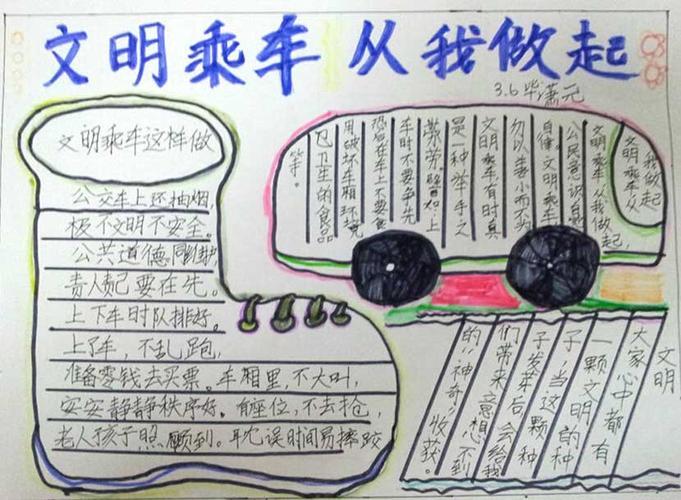 文明乘车 从我做起
3.6 毕潇元
文明乘车这样做
公交车上还抽烟,
极不文明不安全。
公共道德同维护
责人责己要在先。
上下车时队排好。
上了车,不乱跑,
准备零钱去买票。车厢里,不大叫,
安安静静秩序好。有座位,不去抢,
老人孩子照顾到。耽误时间易摔跤
文明乘车从
我做起
文明乘车从我做起,
公民意识自觉
自律。文明乘车
勿以善小而不为
文明乘车有时真
是一种举手之
劳,譬如:上
车时不要争先
恐后在车上不要食
用破坏车厢环境
卫生的食品
等。
文明
大家心中都有
一颗文明的种
子,当这颗种
子发芽后会给我
们带来意想不到
的“神奇”收获。